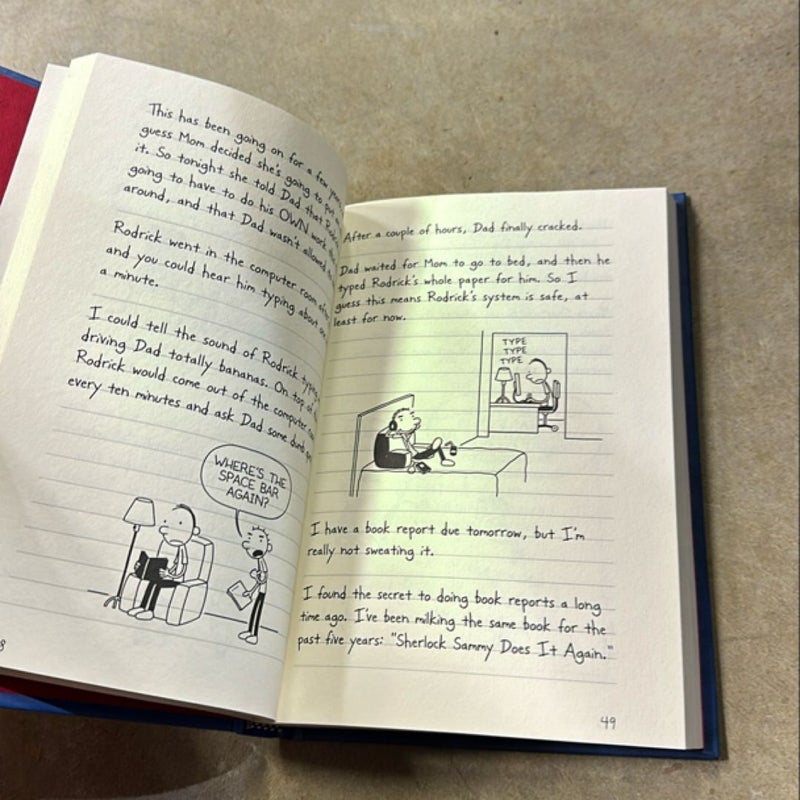 This has been going on for a few years,
guess Mom decided she's going to put
it. So tonight she told Dad that
going to have to do his OWN work
around, and that Dad wasn't allowed
Rodrick went in the computer room after
and you could hear him typing about one
a minute.
I could tell the sound of Rodrick typing
driving Dad totally bananas. On top of
Rodrick would come out of the computer
every ten minutes and ask Dad some dumb
WHERE'S THE
SPACE BAR
AGAIN?
8
After a couple of hours, Dad finally cracked.
Dad waited for Mom to go to bed, and then he
typed Rodrick's whole paper for him. So I
guess this means Rodrick's system is safe, at
least for now.
TYPE
TYPE
TYPE
I have a book report due tomorrow, but I'm
really not sweating it.
I found the secret to doing book reports a long
time ago. I've been milking the same book for the
past five years: "Sherlock Sammy Does It Again."
49